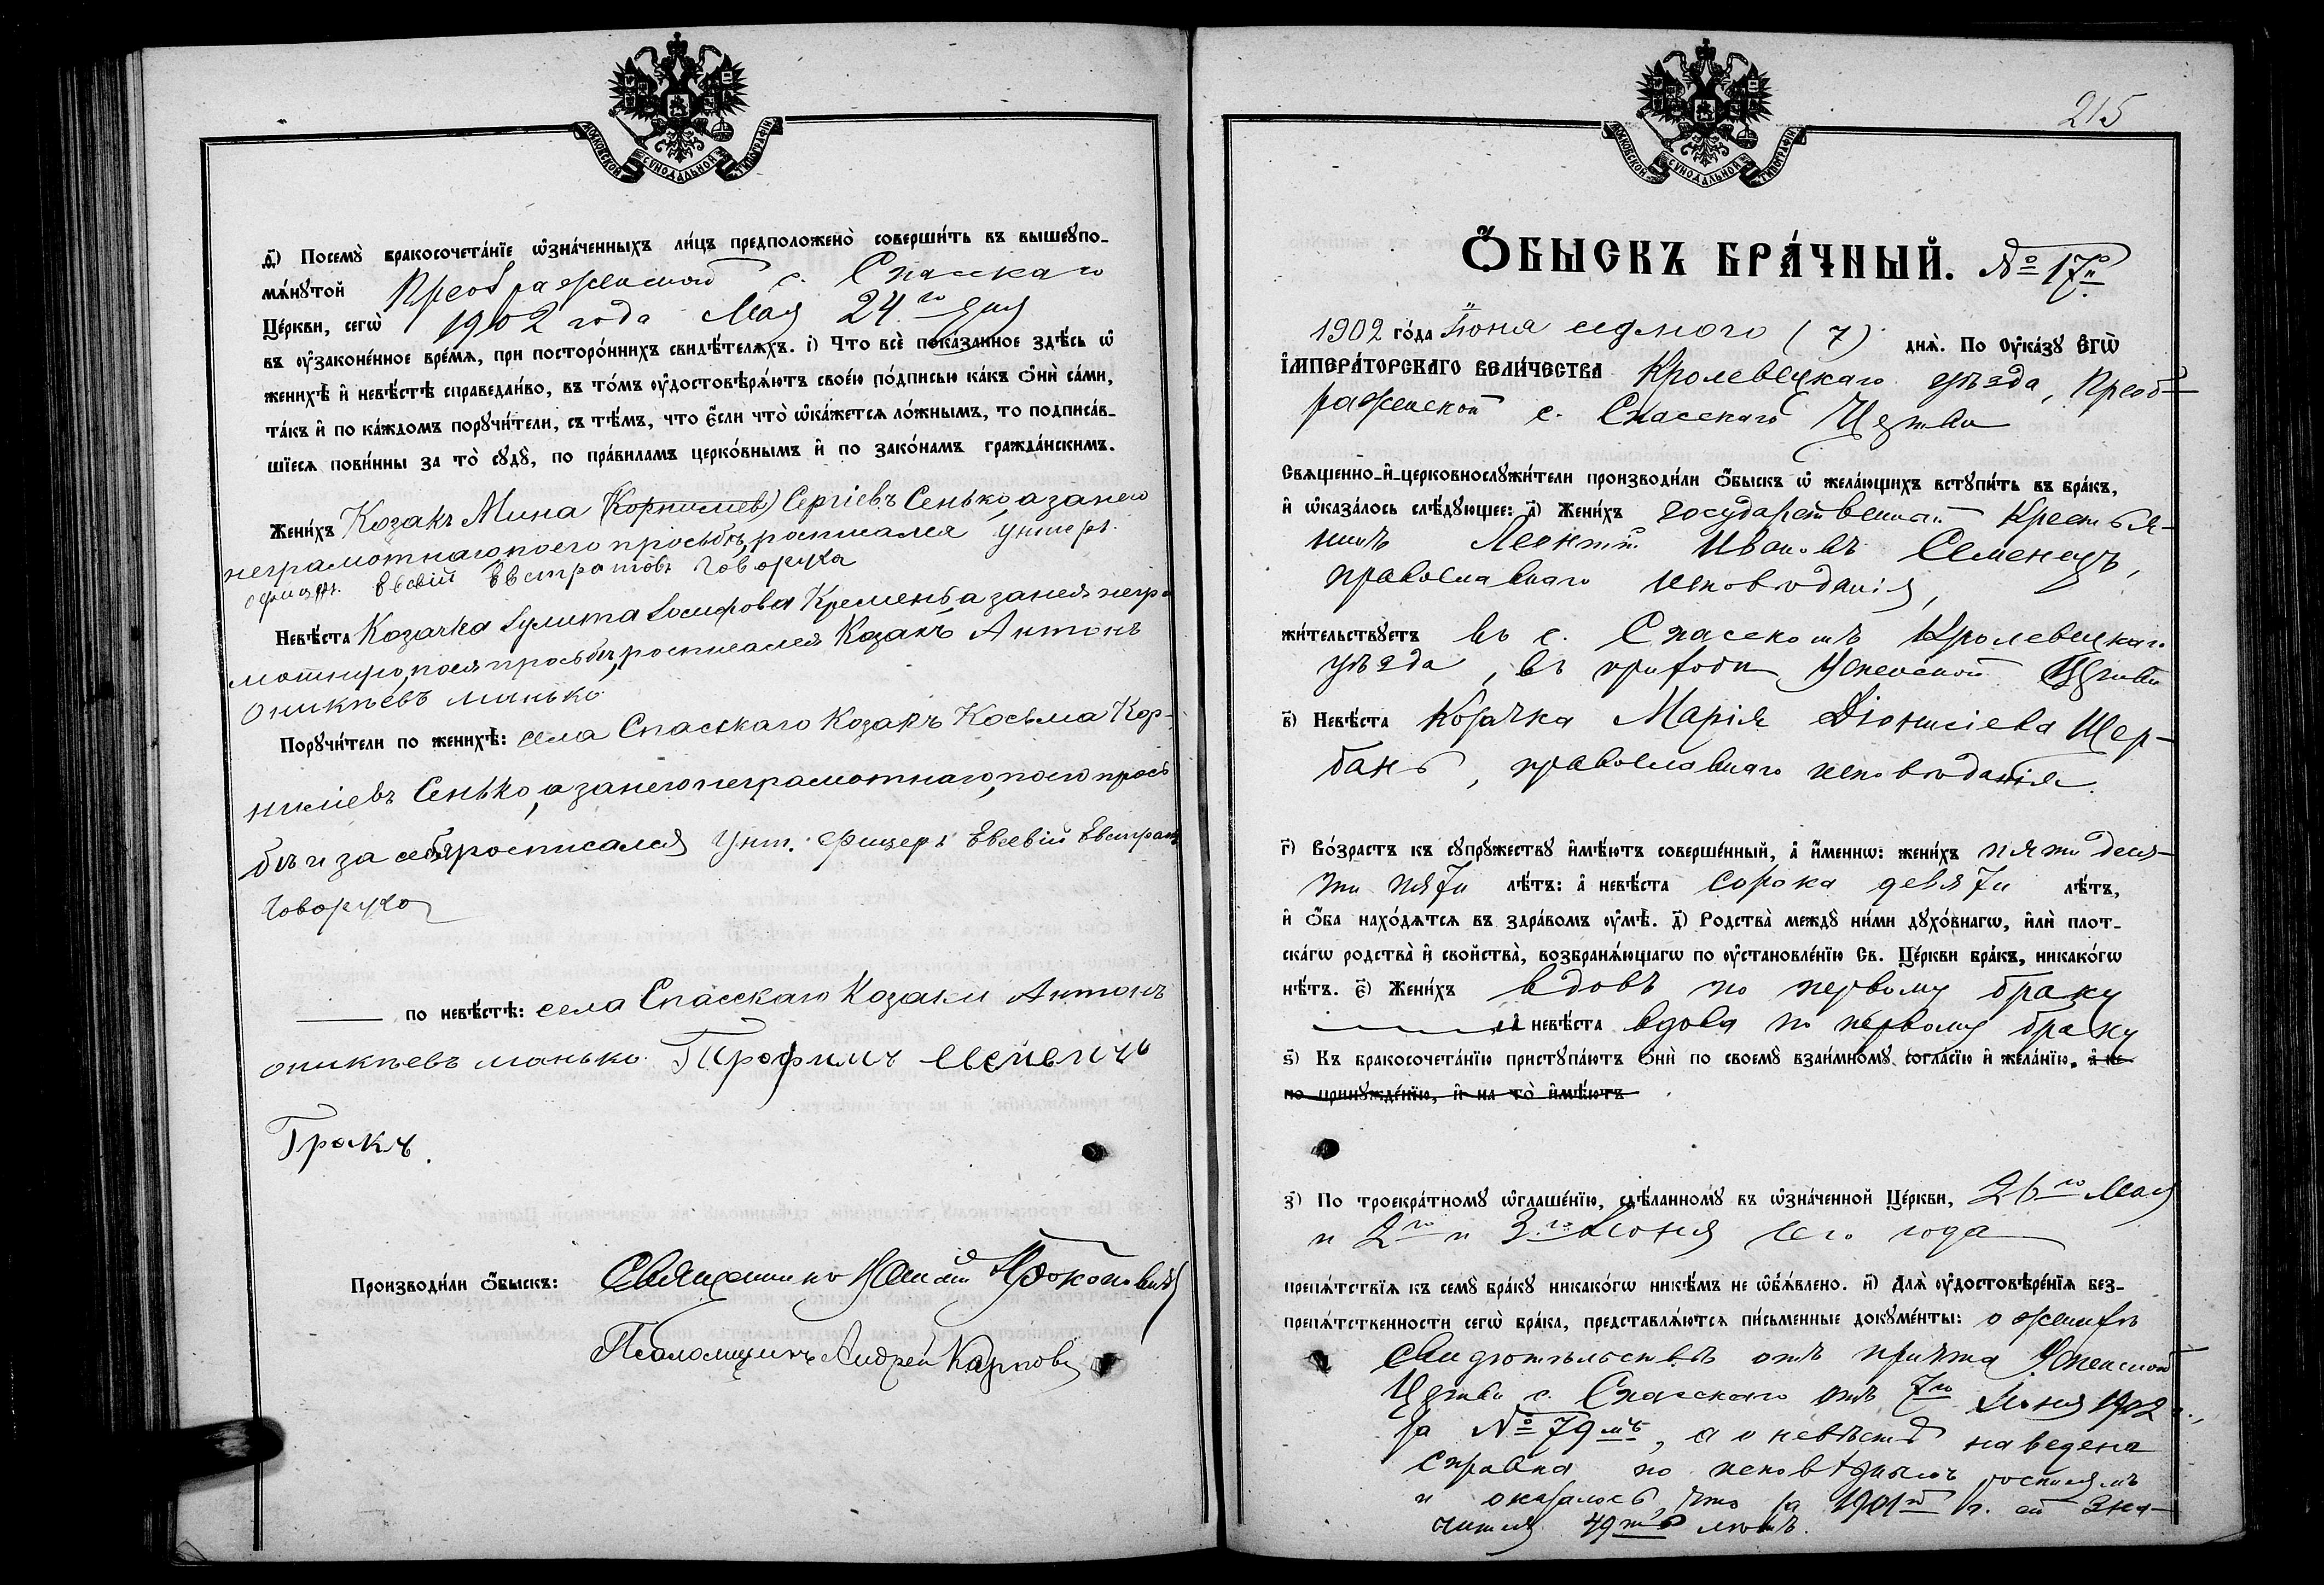 МОСКОВСКОЙ СѴНОДАЛЬНОЙ ТИПОГРАФІИ
д҃) Посемꙋ̀ бракосочета́нїе ѡ҆зна́ченныхъ ли́цъ предположено̀ соверши́ть въ вышеꙋпо-
мѧ́нꙋтой Преображенской с. Спасскаго
Це́ркви, сегѡ̀ 1902 года Мая 24го дня
въ ᲂу҆законе́нное вре́мѧ, при посторо́ннихъ свидѣ́телѧхъ. і҃) Что всѐ пока́занное здѣ́сь ѡ҆
женихѣ̀ и҆ невѣ́стѣ справедли́во, въ то́мъ ᲂу҆достовѣрѧ́ютъ свое́ю по́дписью ка́къ ѻ҆нѝ са́ми,
та́къ и҆ по ка́ждомъ порꙋчи́тели, съ тѣ́мъ, что є҆́сли что̀ ѡ҆ка́жетсѧ ло́жнымъ, то подписа́в-
шїесѧ пови́нны за то̀ сꙋдꙋ̀, по пра́виламъ церко́внымъ и҆ по зако́намъ гражда́нскимъ.
Жени́хъ Козакъ Мина (Корнилиев) Сергіевъ Сенько, а за него
неграмотнаго, по его просьбѣ, росписался унтеръ.
офицер. Евсевій Евстратовъ Говоруха
Невѣ́ста Козачка Іулита Іосифова Кремень, а за нея негра
мотную, по ея просьбѣ, росписался Козакъ Антонъ
Оникіевъ Манько
Порꙋчи́тели по женихѣ̀: села Спасскаго Козакъ Косьма Кор-
нилиевъ Сенько, а за него неграмотнаго, по его прось
бѣ и за себя росписался Унт. офицеръ Евсевій Евстратов
Говоруха
по невѣ́стѣ: села Спасскаго Козаки Антонъ
оникіевъ манько. Трофимъ
Гракъ.
Производи́ли ѻ҆́быскъ: Священникъ Прокоповичъ
Псаломщикъ Андрей Карпов
215
МОСКОВСКОЙ СѴНОДАЛЬНОЙ ТИПОГРАФІИ
Ѻ҆́БЫСКЪ БРА́ЧНЫЙ. № 17й
1902 го́да Іюня седмого (7) днѧ̀. По ᲂу҆ка́зꙋ Є҆гѡ̀
І҆мпера́торскаго вели́чества Кролевецкаго уѣзда, Преоб-
раженской с. Спасскаго Церкви
Свѧще́нно-и҆-церковнослꙋжи́тели производи́ли ѻ҆́быскъ ѡ҆ жела́ющихъ встꙋпи́ть въ бра́къ,
и҆ ѡ҆каза́лось слѣ́дꙋющее: а҃) Жени́хъ государственный Крестья-
нинъ Леонтій Ивановъ Семенецъ,
православнаго исповѣданія,
жи́тельствꙋетъ въ с. Спасскомъ Кролевецкаго
уѣзда, въ приходѣ Успенской Церкви
в҃) Невѣ́ста Козачка Марія Діонисіева Щер-
бань, православнаго исповѣданія.
г҃) Во́зрастъ къ сꙋпрꙋ́жествꙋ и҆мѣ́ютъ соверше́нный, а҆ и҆́меннѡ: жени́хъ пятидеся-
ти пяти лѣ́тъ: а҆ невѣ́ста сорока девяти лѣ́тъ,
и҆ ѻ҆́ба нахо́дѧтсѧ въ здра́вомъ ᲂу҆мѣ̀. д҃) Родства̀ междꙋ̀ ни́ми дꙋхо́внагѡ, и҆лѝ плот-
ска́гѡ родства̀ и҆ свойства̀, возбранѧ́ющагѡ по ᲂу҆становле́нїю Св. Це́ркви бра́къ, никако́гѡ
нѣ́тъ. є҃) Жени́хъ вдовъ по первому браку
а҆ невѣ́ста вдова по первому браку
ѕ҃) Къ бракосочета́нїю пристꙋпа́ютъ ѻ҆нѝ по своемꙋ̀ взаи́мномꙋ согла́сїю и҆ жела́нїю, а҆ не
по принꙋжде́нїю, и҆ на то̀ и҆мѣ́ютъ
з҃) По троекра́тномꙋ ѡ҆глаше́нїю, сдѣ́ланномꙋ въ ѡ҆зна́ченной Це́ркви, 26го Мая
и 2го и 3го Іюня сего года
препѧ́тствїѧ къ семꙋ̀ бра́кꙋ никако́гѡ никѣ́мъ не ѡ҆б̾ѧ́влено. и҃) Длѧ̀ ᲂу҆достовѣре́нїѧ без-
препѧ́тственности сегѡ̀ бра́ка, представлѧ́ютсѧ пи́сьменные докꙋме́нты: о женихѣ
свидѣтельство отъ причта Успенской
Церкви с. Спасскаго отъ 7го Іюня 1902 г.,
за № 79мъ, а о невѣстѣ наведена
справка по исповѣднымъ росписямъ
и оказалось, что за 1901й г. ей зна-
чится 49ть лѣтъ.